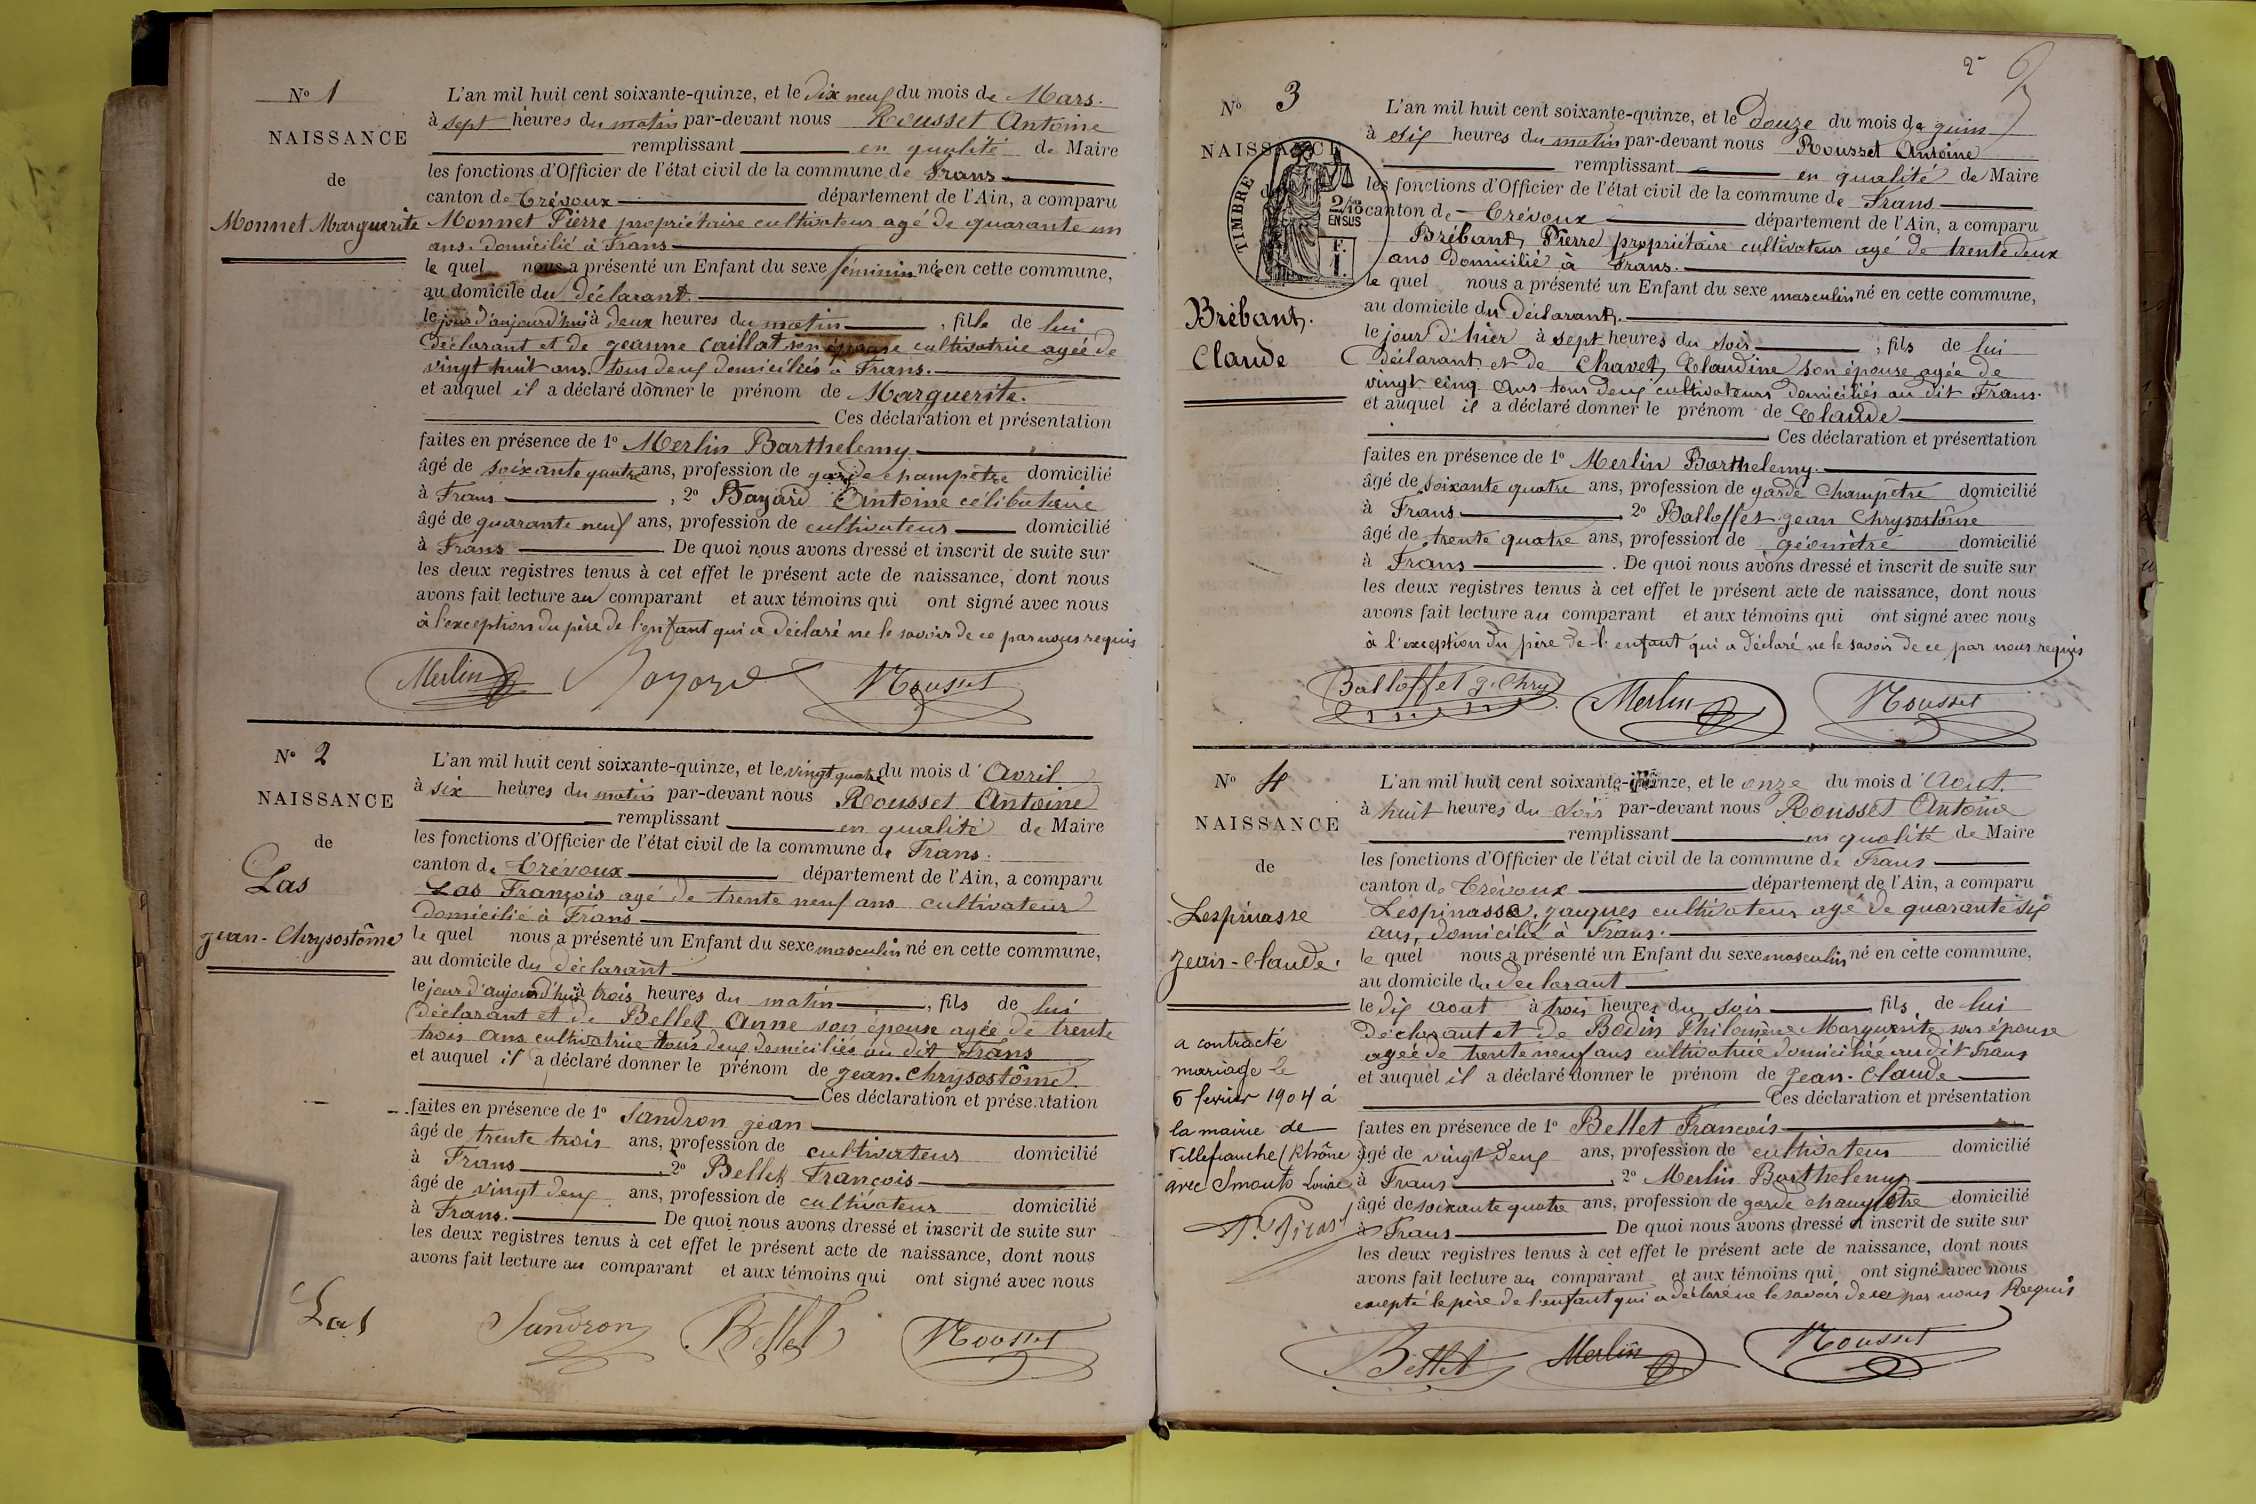 N° 1
NAISSANCE
de
Monnet Marguerite
L'an mil huit cent soixante-quinze, et le dix neuf du mois de Mars.
à sept heures du matin par-devant nous Rousset Antoine
remplissant en qualité de Maire
les fonctions d'Officier de l'état civil de la commune de Frans
canton de Trévoux département de l'Ain, a comparu
Monnet Pierre propriétaire cultivateur agé de quarante un
ans. domicilié à Frans
le quel nous a présenté un Enfant du sexe féminin né en cette commune,
au domicile du déclarant.
le jour d'aujourd'hui à deux heures du matin, fille de lui
déclarant et de jeanne Caillat son épouse cultivatrice agée de
vingt huit ans. tous deux domiciliés à Frans.
et auquel il a déclaré donner le prénom de Marguerite.
Ces déclaration et présentation
faites en présence de 1° Merlin Barthelemy.
âgé de soixante quatre ans, profession de garde champêtre domicilié
à Frans, 2° Bayard Antoine célibataire
âgé de quarante neuf ans, profession de cultivateur domicilié
à Frans De quoi nous avons dressé et inscrit de suite sur
les deux registres tenus à cet effet le présent acte de naissance, dont nous
avons fait lecture au comparant et aux témoins qui ont signé avec nous
à l'exception du père de l'enfant qui a déclaré ne le savoir de ce par nous requis
Merlin Bayard Rousset
N° 2
NAISSANCE
de
Las
jean-Chrysostôme
L'an mil huit cent soixante-quinze, et le vingt quatre du mois d'Avril
à six heures du matin par-devant nous Rousset Antoine
remplissant en qualité de Maire
les fonctions d'Officier de l'état civil de la commune de Frans.
canton de Trévoux département de l'Ain, a comparu
Las François agé de trente neuf ans cultivateur
domicilié à Frans
le quel nous a présenté un Enfant du sexe masculin né en cette commune,
au domicile du déclarant
le jour d'aujourd'hui à trois heures du matin, fils de lui
déclarant et de Bellet Anne son épouse agée de trente
trois ans cultivatrice tous deux domiciliés au dit Frans
et auquel il a déclaré donner le prénom de jean-Chrysostôme.
Ces déclaration et présentation
faites en présence de 1° Sandron jean
âgé de trente trois ans, profession de cultivateur domicilié
à Frans 2° Bellet François
âgé de vingt deux ans, profession de cultivateur domicilié
à Frans. De quoi nous avons dressé et inscrit de suite sur
les deux registres tenus à cet effet le présent acte de naissance, dont nous
avons fait lecture au comparant et aux témoins qui ont signé avec nous
Las Sandron Bellet Rousset
2
N° 3
NAISSANCE
TIMBRE
2/10
EN SUS
Brébant.
Claude
L'an mil huit cent soixante-quinze, et le Douze du mois de juin
à dix heures du matin par-devant nous Rousset Antoine
remplissant en qualité de Maire
les fonctions d'Officier de l'état civil de la commune de Frans
canton de Trévoux département de l'Ain, a comparu
Brébant Pierre propriétaire cultivateur agé de trente deux
ans domicilié à Frans.
le quel nous a présenté un Enfant du sexe masculin né en cette commune,
au domicile du déclarant.
le jour d'hier à sept heures du soir, fils de lui
déclarant et de Chavet Claudine son épouse agée de
vingt cinq ans tous deux cultivateurs domiciliés au dit Frans.
et auquel il a déclaré donner le prénom de Claude
Ces déclaration et présentation
faites en présence de 1° Merlin Barthelemy.
âgé de soixante quatre ans, profession de garde Champêtre domicilié
à Frans 2° Balloffet jean Chrysostôme
âgé de trente quatre ans, profession de géomètre domicilié
à Frans. De quoi nous avons dressé et inscrit de suite sur
les deux registres tenus à cet effet le présent acte de naissance, dont nous
avons fait lecture au comparant et aux témoins qui ont signé avec nous
à l'exception du père de l'enfant qui a déclaré ne le savoir de ce par nous requis
Balloffet j. Chry Merlin Rousset
N° 4
NAISSANCE
de
Lespinasse
jean-Claude.
a contracté
mariage le
6 février 1904 à
la mairie de
Villefranche (Rhône)
avec Louise
L'an mil huit cent soixante-quinze, et le onze du mois d'Aout.
à huit heures du soir par-devant nous Rousset Antoine
remplissant en qualité de Maire
les fonctions d'Officier de l'état civil de la commune de Frans
canton de Trévoux département de l'Ain, a comparu
Lespinasse, jacques cultivateur agé de quarante six
ans, domicilié à Frans.
le quel nous a présenté un Enfant du sexe masculin né en cette commune,
au domicile du declarant
le dix aout à trois heures du soir, fils de lui
déclarant et de Bodin Philomène Marguerite son épouse
agée de trente neuf ans cultivatrice domiciliée au dit Frans
et auquel il a déclaré donner le prénom de jean-Claude
Ces déclaration et présentation
faites en présence de 1° Bellet François
âgé de vingt deux ans, profession de cultivateur domicilié
à Frans, 2° Merlin Barthelemy
âgé de soixante quatre ans, profession de garde champêtre domicilié
à Frans De quoi nous avons dressé et inscrit de suite sur
les deux registres tenus à cet effet le présent acte de naissance, dont nous
avons fait lecture au comparant et aux témoins qui ont signé avec nous
excepté le père de l'enfant qui a déclaré ne le savoir de ce par nous Requis
Bellet Merlin Rousset